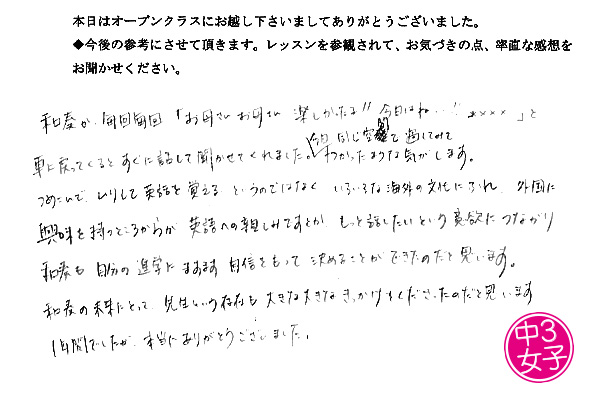 本日はオープンクラスにお越し下さいましてありがとうございました。
◆今後の参考にさせて頂きます。レッスンを参観されて、お気づきの点、率直な感想を
お聞かせください。
和奏が、毎回毎回「お母さんお母さん 楽しかったよ!! 今日はね…!! ××××」と
車に戻ってくるとすぐに話して聞かせてくれました。今日同じ空間で過してみて
わかったような気がします。
つめこんで、ムリして英語を覚える というのではなく いろいろな海外の文化にふれ、外国に
興味を持つところからが 英語への親しみですとか、もっと話したいという意欲につながり
和奏も 自分の進学にますます 自信をもって 決めることが できたのだと思います。
和奏の未来にとって、先生という存在も 大きな大きなきっかけをくださったのだと思います
1年間でしたが、本当にありがとうございました。
中3
女子